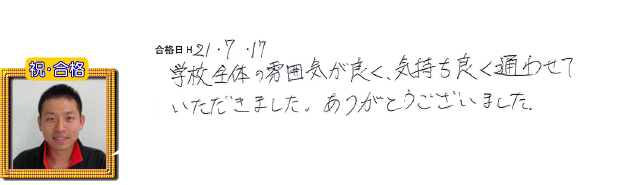 祝・合格
合格日 H 21・7・17
学校全体の雰囲気が良く、気持ち良く通わせて
いただきました。ありがとうございました。